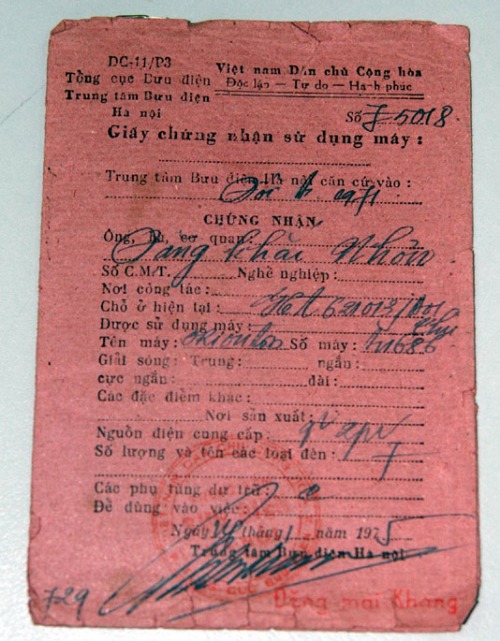 DC-11/P3
Tổng cục Bưu điện
Trung tâm Bưu điện
Hà nội
Việt nam Dân chủ Cộng hòa
Độc lập — Tự do — Hạnh phúc
Số 5018
Giấy chứng nhận sử dụng máy :
Trung tâm Bưu điện Hà nội căn cứ vào :
CHỨNG NHẬN
Ông, Bà, cơ quan: Khải Nhỡn
Số C.M.T. Nghề nghiệp:
Nơi công tác:
Chỗ ở hiện tại :
Được sử dụng máy:
Tên máy: Orionton Số máy:
Giải sóng: Trung: ngắn:
cực ngắn: dài:
Các đặc điểm khác:
Nơi sản xuất:
Nguồn điện cung cấp
Số lượng và tên các loại đèn: 7
Các phụ tùng dự trữ:
Để dùng vào việc:
Ngày tháng 1 năm 1975
Trung tâm Bưu điện Hà nội
729
Đặng mai Khang